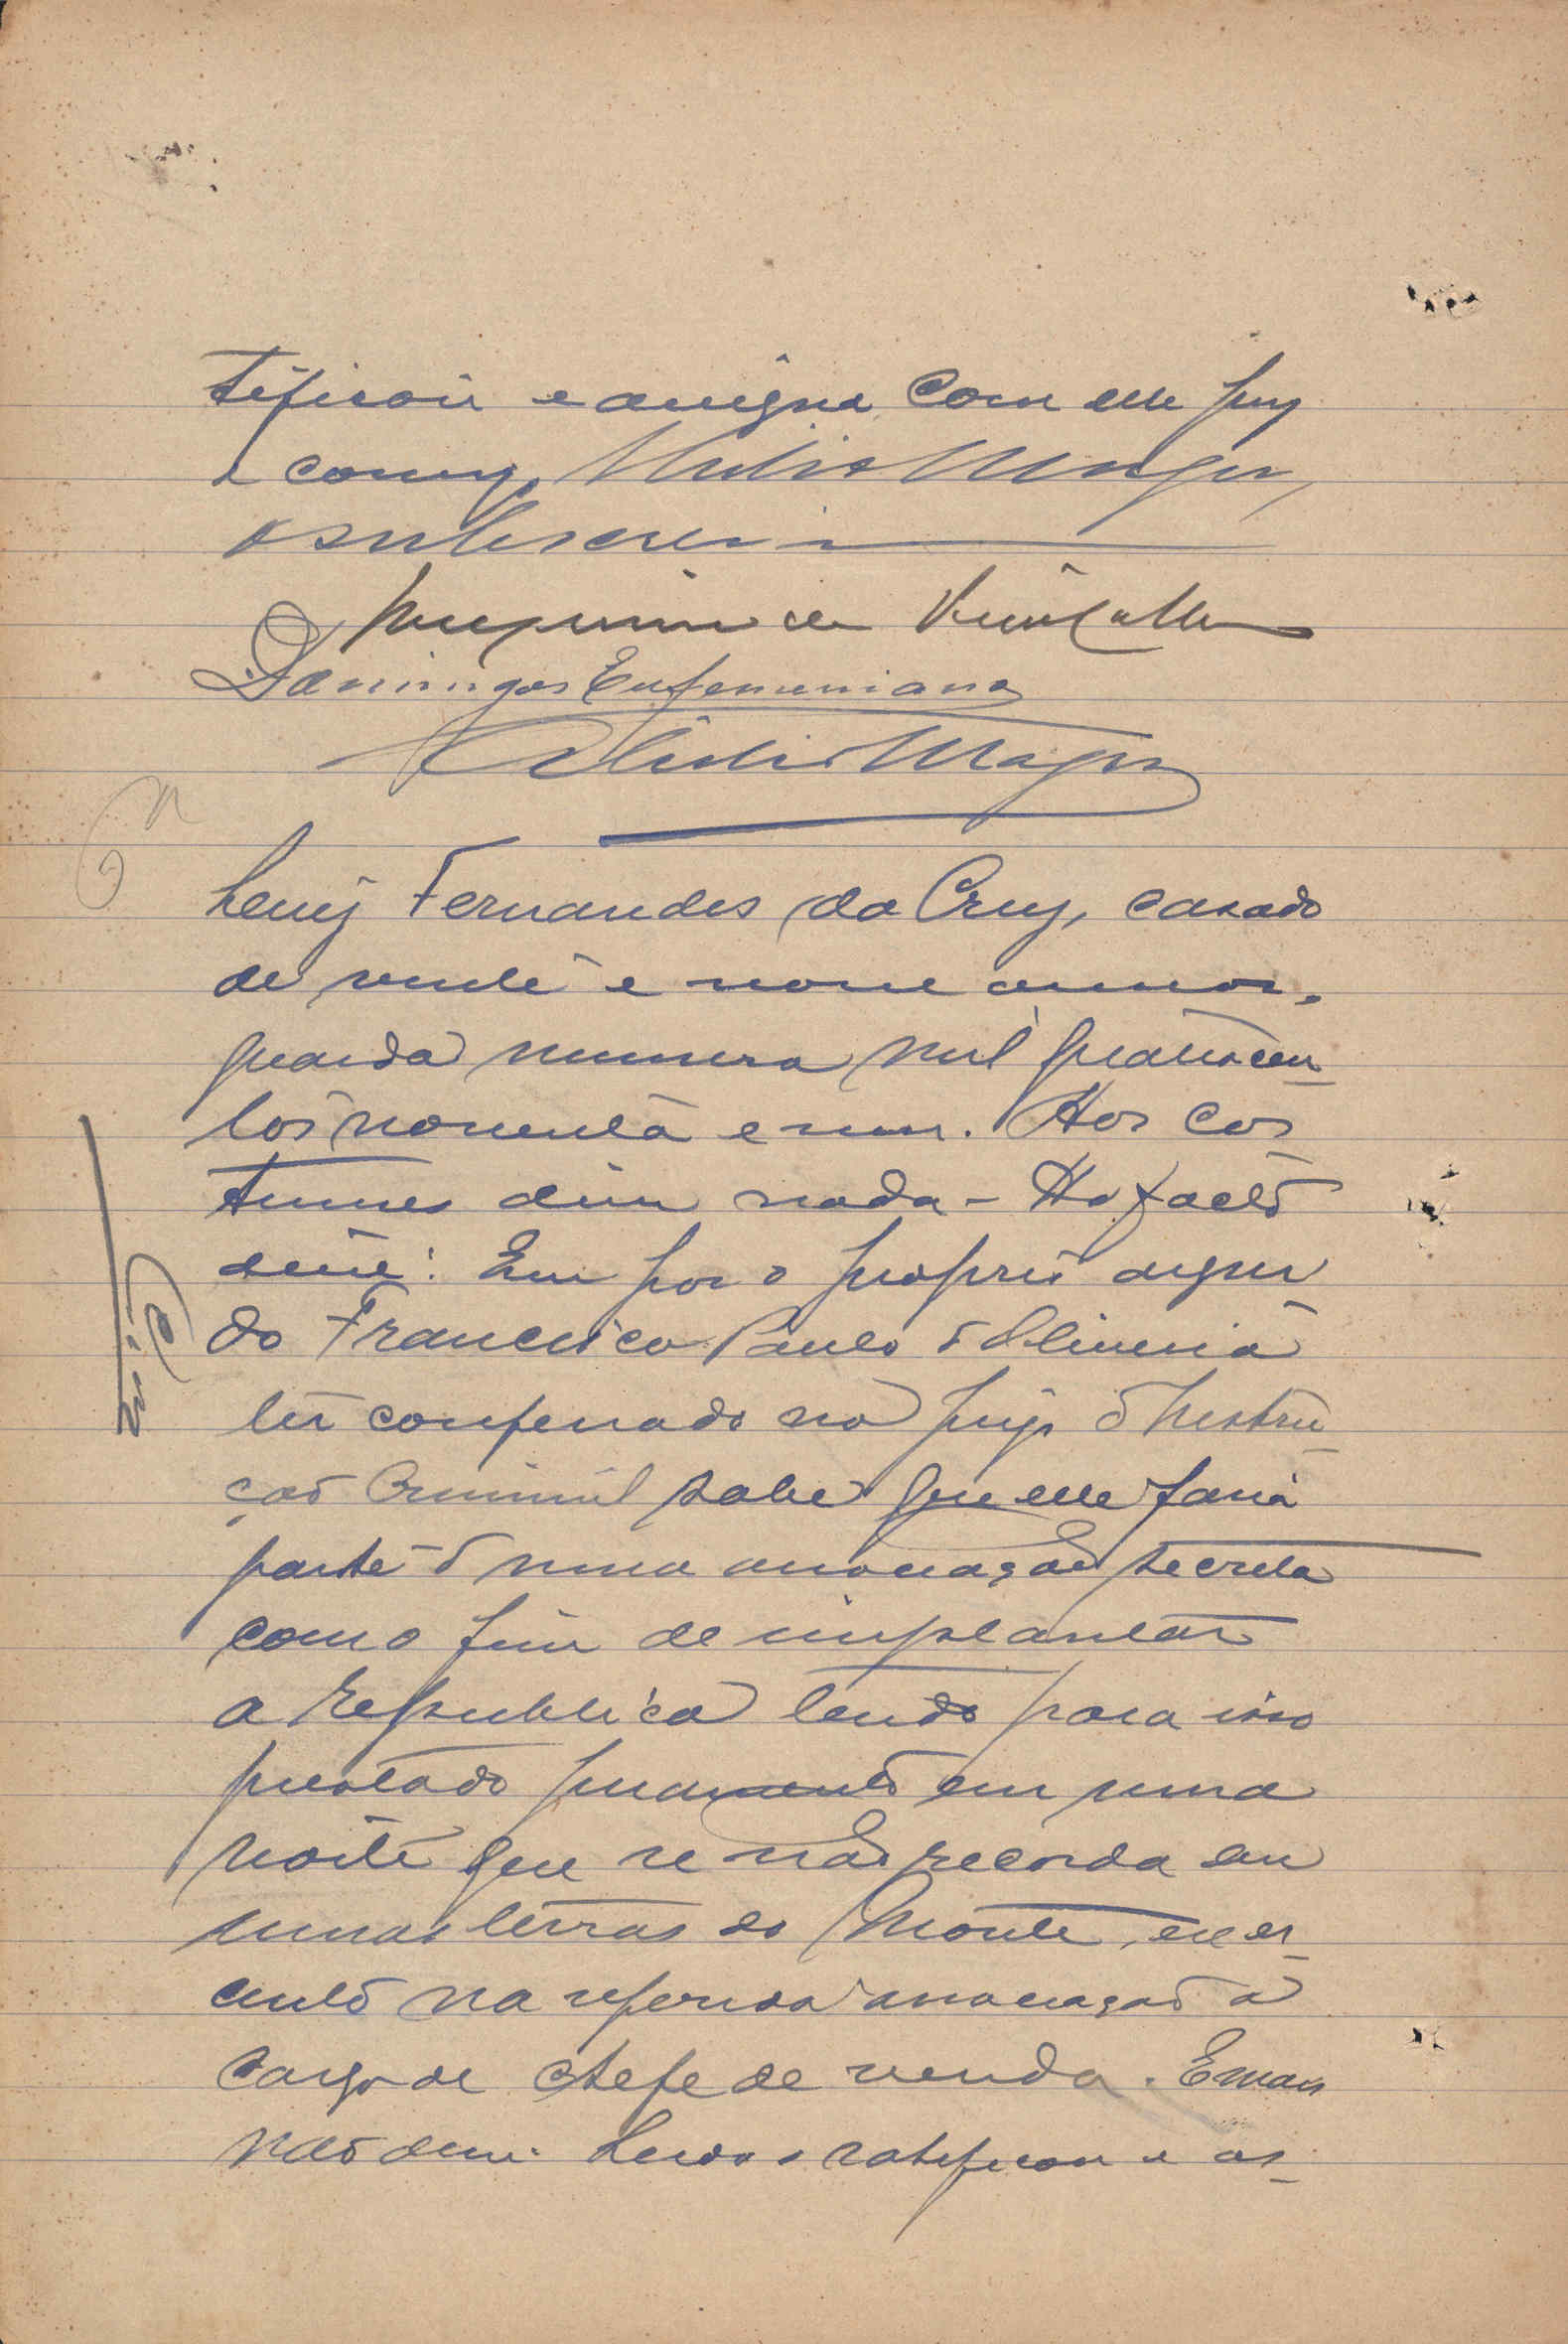 tificou e assigna com elle Juiz
e comigo,
o subscrevi
Domingos Eufemeniano
Luiz Fernandes da Cruz, casado
de vinte e nove annos,
guarda numero mil quatrocen-
tos noventa e um. Aos cos-
tumes disse nada – Ao facto
disse: Que por o proprio argui-
do Francisco Paulo d'Oliveira
ter confessado no Juizo d'Instru-
ção Criminal sabe que elle fazia
parte d'uma associação secreta
com o fim de implantar
a Republica tendo para isso
prestado juramento em uma
noite que se não recorda em
umas terras do Monte, exer-
cendo na referida associação o
cargo de chefe de venda. E mais
não disse. Lido o ratificou e as-